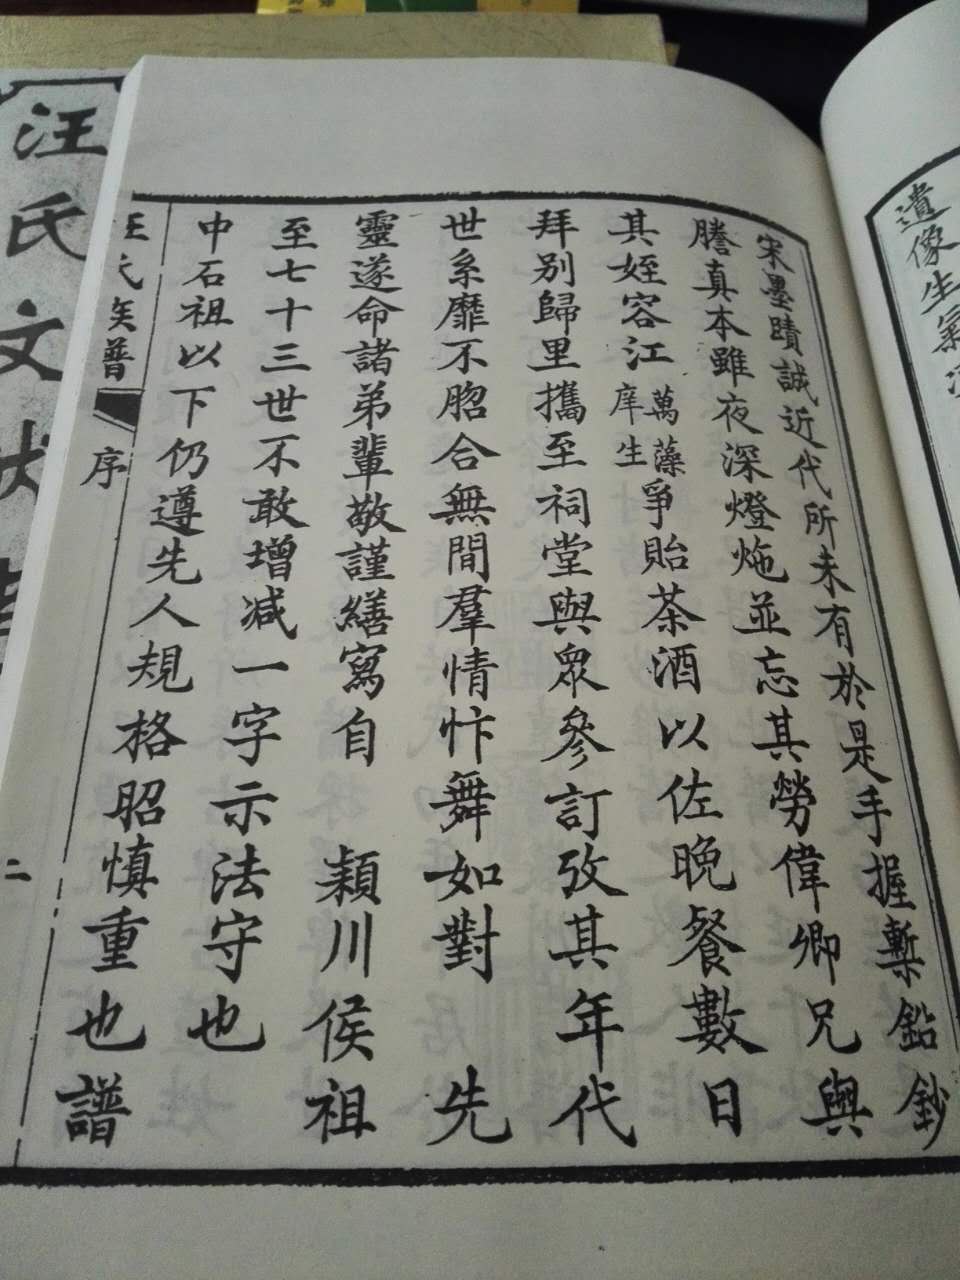 遺像生氣
宋墨蹟誠近代所未有於是手握槧鉛鈔
謄真本雖夜深燈炧並忘其勞偉卿兄與
其姪容江萬藻庠生爭貽茶酒以佐晚餐數日
拜別歸里攜至祠堂與眾參訂攷其年代
世系靡不脗合無間羣情忭舞如對 先
靈遂命諸弟輩敬謹繕寫自 潁川侯祖
至七十三世不敢增減一字示法守也
中石祖以下仍遵先人規格昭慎重也譜
汪氏族譜 序 二
汪氏文獻